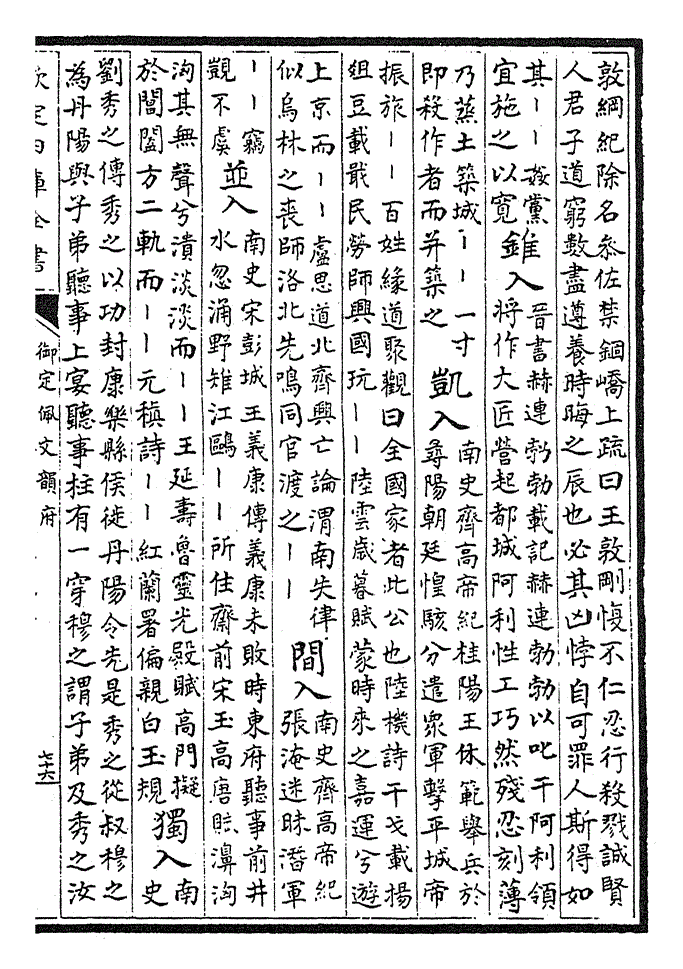 敦綱紀除名參佐禁錮嶠上疏曰王敦剛愎不仁忍行殺戮誠賢
人君子道窮數盡遵養時晦之辰也必其凶悖自可罪人斯得如
其丨丨姦黨
宜施之以寬
錐入
晉書赫連勃勃載記赫連勃勃以叱干阿利領
將作大匠營起都城阿利性工巧然殘忍刻薄
乃蒸土築城丨丨一寸
即殺作者而并築之
凱入
南史齊高帝紀桂陽王休範舉兵於
尋陽朝廷惶駭分遣衆軍擊平城帝
振旅丨丨百姓緣道聚觀曰全國家者此公也陸機詩干戈載揚
俎豆載戢民勞師興國玩丨丨陸雲歲暮賦蒙時來之嘉運兮遊
上京而丨丨盧思道北齊興亡論渭南失律
似烏林之喪師洛北先鳴同官渡之丨丨
間入
南史齊高帝紀
張淹迷昧潛軍
丨丨竊
覬不虞
並入
南史宋彭城王義康傳義康未敗時東府聽事前井
水忽涌野雉江鷗丨丨所住齋前宋玉高唐賦濞洶
洶其無聲兮潰淡淡而丨丨王延壽魯靈光殿賦高門擬
於閶闔方二軌而丨丨元稹詩丨丨紅蘭署偏親白玉規
獨入
南
史
劉秀之傳秀之以功封康樂縣侯徙丹陽令先是秀之從叔穆之
為丹陽與子弟聽事上宴聽事柱有一穿穆之謂子弟及秀之汝
欽定四庫全書
御定佩文韻府
七十六